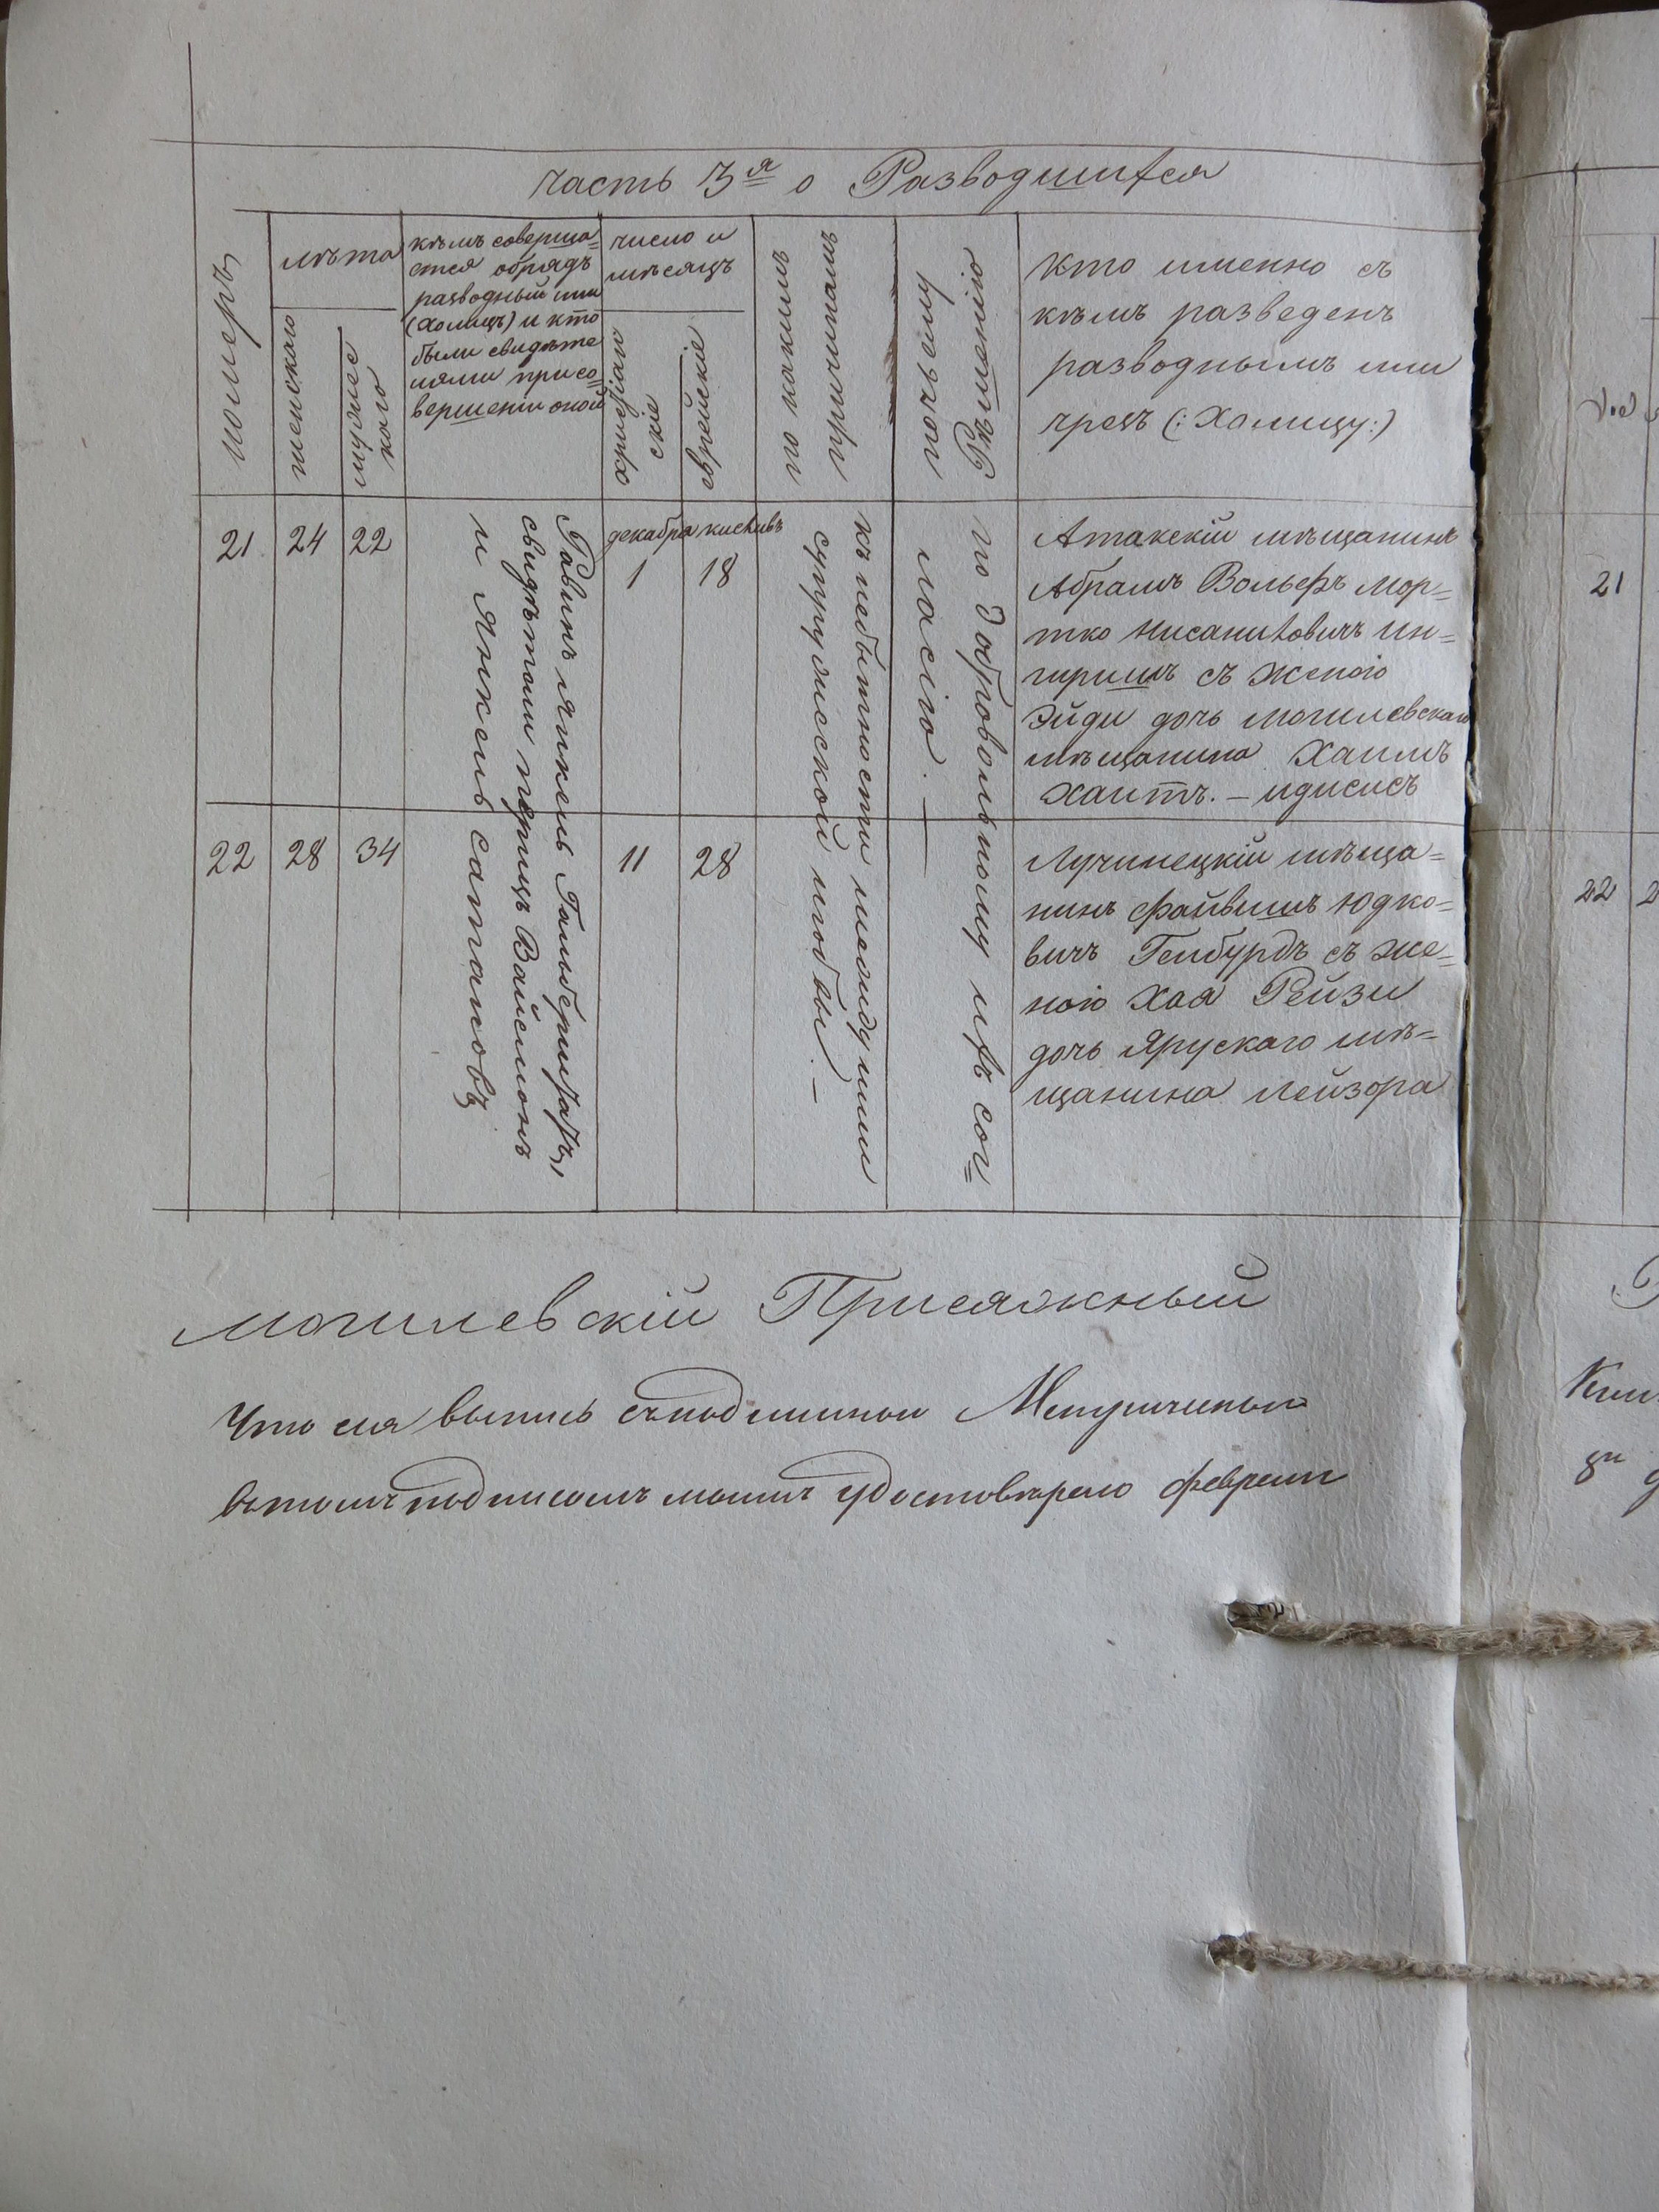 Часть 3я о Разводшихся
номеръ
лѣта
женскаго
мужес
каго
кѣмъ соверша=
ется обрядъ
разводный или
(Холицъ) и кто
были свидѣте
лями при со=
вершении оной
число и
мѣсяцъ
христіан
ские
еврейские
по какимъ
причинамъ
по чьему
Рѣшению
кто именно съ
кѣмъ разведенъ
разводнымъ или
чрезъ (: Холицу:)
21
24
22
Равинъ Янкель Гальберштатъ,
свидѣтели Перицъ Вайсмонъ
и Янкель Сатановъ
декабря
1
кислевъ
18
къ небытности между ними
супружеской любвы. —
по добровольному ихъ сог=
ласію. —
Атакскій мѣщанинъ
Абрамъ Вольфъ Мор=
тко Нисаниховичъ Ин=
гиришъ съ женою
Эйди дочь Могилевскаго
мѣщанина Хаимъ
Хаитъ. — Идисисъ
22
28
34
11
28
Лучинецкій мѣща=
нинъ Файвишъ Юдко=
вичъ Гельбурдъ съ же=
ною Хая Рейзи
дочь Ярускаго мѣ=
щанина Лейзора
Могилевскій Присяжный
Что сия выпись съ подлинной Метричиной
въ томъ подписомъ моимъ удостоверяю Февраля
21
22
2